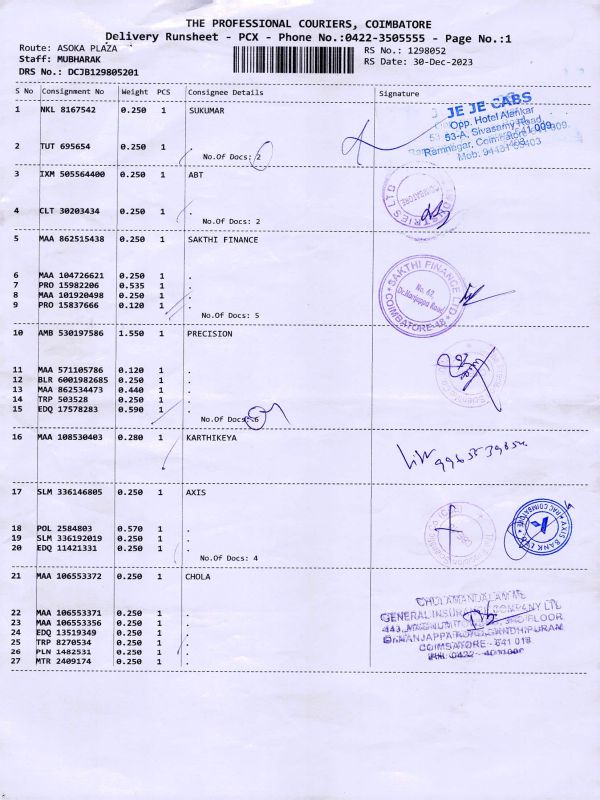 THE PROFESSIONAL COURIERS, COIMBATORE
Delivery Runsheet - PCX - Phone No.:0422-3505555 - Page No.:1
Route: ASOKA PLAZA
RS No.: 1298052
Staff: MUBHARAK
RS Date: 30-Dec-2023
DRS No.: DCJB129805201
S No Consignment No Weight PCS Consignee Details Signature
1 NKL 8167542 0.250 1 SUKUMAR
JE JE CABS
Opp. Hotel Alankar
53-A, Sivasamy Road,
Ramnagar, Coimbatore-641 009.
2 TUT 695654 0.250 1 .
No.Of Docs: 2
3 IXM 505564400 0.250 1 ABT
COIMBATORE
4 CLT 30203434 0.250 1 .
No.Of Docs: 2
5 MAA 862515438 0.250 1 SAKTHI FINANCE
SAKTHI FINANCE LTD
No. 42,
Dr.Nanjappa Road
COIMBATORE-18
6 MAA 104726621 0.250 1 .
7 PRO 15982206 0.535 1 .
8 MAA 101920498 0.250 1 .
9 PRO 15837666 0.120 1 .
No.Of Docs: 5
10 AMB 530197586 1.550 1 PRECISION
11 MAA 571105786 0.120 1 .
12 BLR 6001982685 0.250 1 .
13 MAA 862534473 0.440 1 .
14 TRP 503528 0.250 1 .
15 EDQ 17578283 0.590 1 .
No.Of Docs: 6
16 MAA 108530403 0.280 1 KARTHIKEYA
17 SLM 336146805 0.250 1 AXIS
AXIS BANK LTD
18 POL 2584803 0.570 1 .
19 SLM 336192019 0.250 1 .
20 EDQ 11421331 0.250 1 .
No.Of Docs: 4
21 MAA 106553372 0.250 1 CHOLA
CHOLAMANDALAM MS
GENERAL INSURANCE COMPANY LTD
22 MAA 106553371 0.250 1 .
23 MAA 106553356 0.250 1 .
24 EDQ 13519349 0.250 1 .
25 TRP 8270534 0.250 1 .
26 PLN 1482531 0.250 1 .
27 MTR 2409174 0.250 1 .
COIMBATORE - 641 018